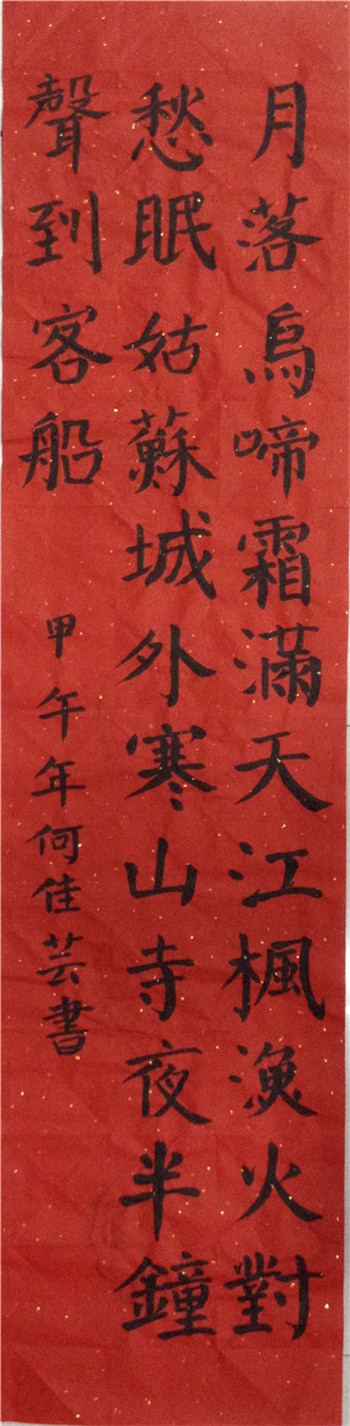 月落烏啼霜滿天江楓漁火對
愁眠姑蘇城外寒山寺夜半鐘
聲到客船
甲午年何佳芸書